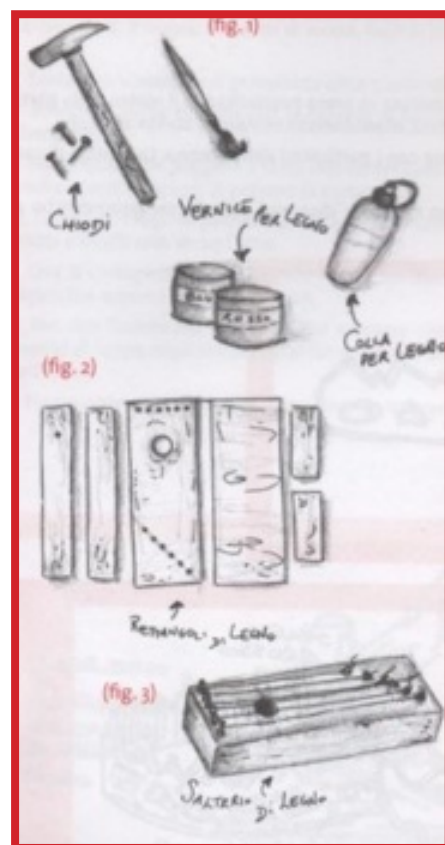 (fig. 1)
CHIODI
VERNICE PER LEGNO
ROSSO
COLLA
PER LEGNO
(fig. 2)
RETTANGOLI DI LEGNO
(fig. 3)
SALTERIO
DI LEGNO